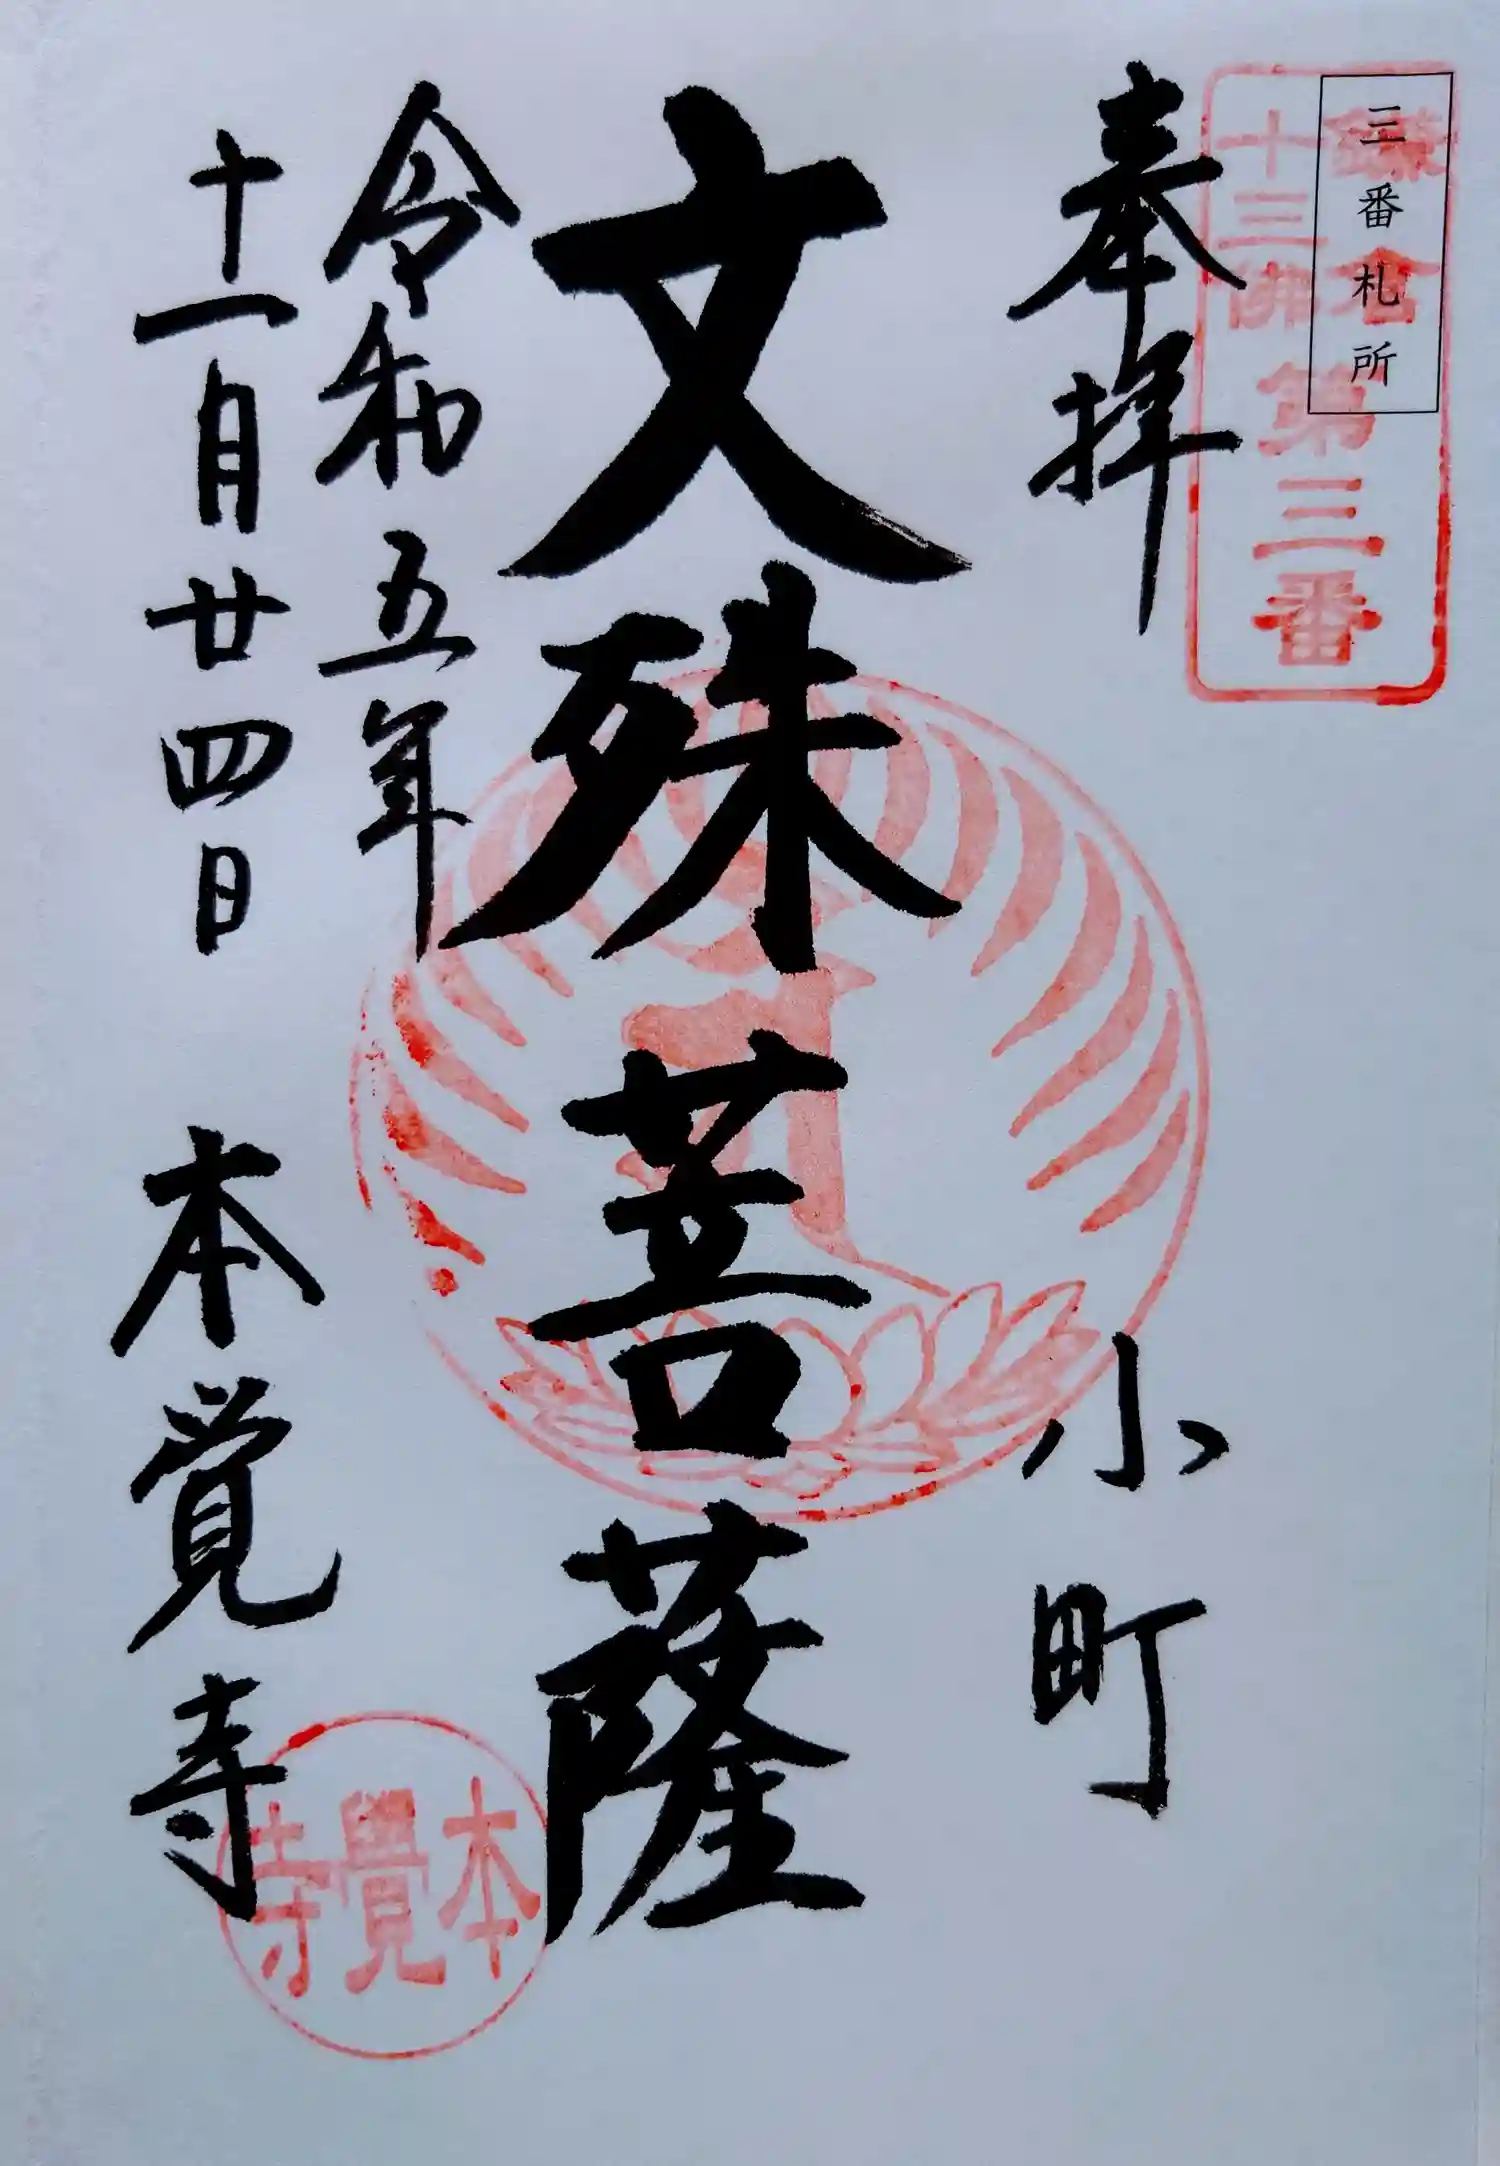 三番札所
鎌倉
十三佛
第三番
奉拝
小町
文殊菩薩
令和五年
十一月廿四日
本覚寺
本覺寺